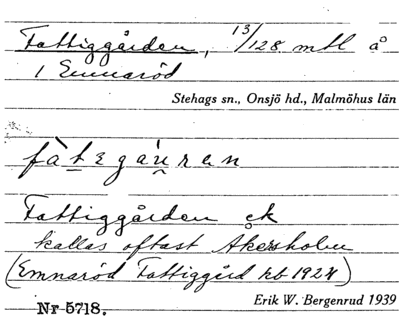 Fattiggården, 13/128 mtl å
1 Emnaröd
Stehags sn., Onsjö hd., Malmöhus län
Fattiggården ek
kallas oftast Åkersholm
(Emnaröd Fattiggård kb 1924)
Erik W. Bergenrud 1939
Nr 5718.